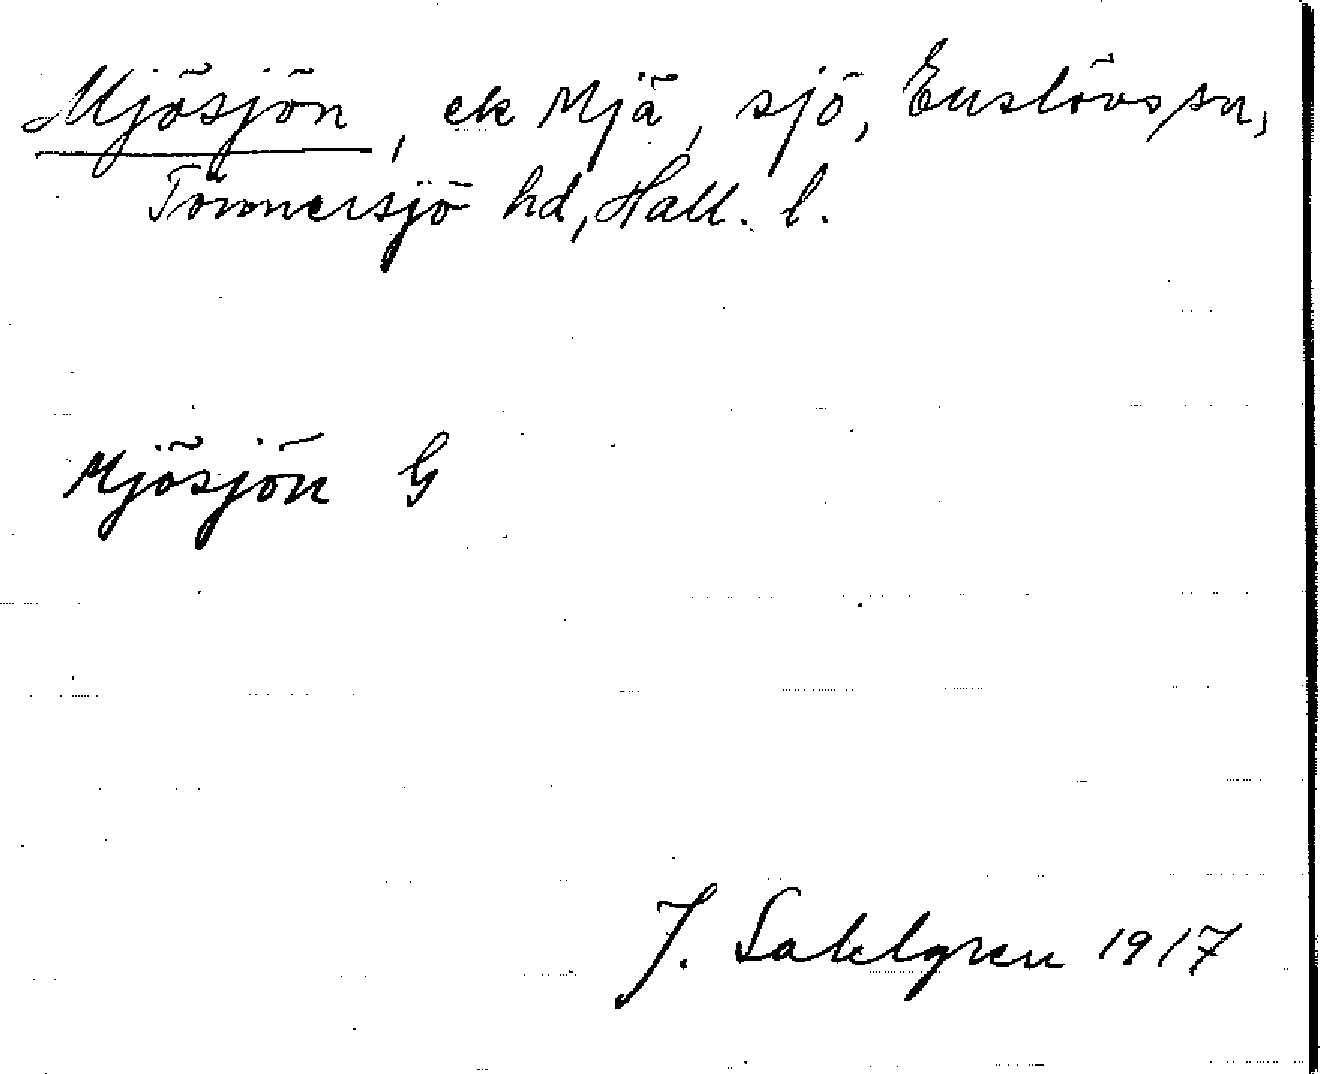 Mjösjön, ek Mjä, sjö, Enslövs sn,
Tönnersjö hd, Hall. l.
Mjösjön G
J. Sahlgren 1917